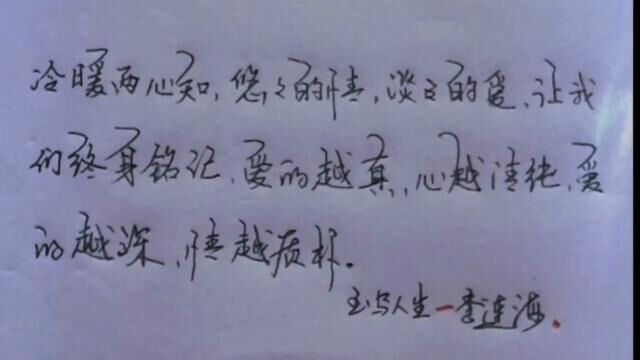 冷暖两心知,悠々的情,淡々的爱,让我
们终身铭记、爱的越真,心越清纯,爱
的越深,情越质朴。
玉与人生一李连海.